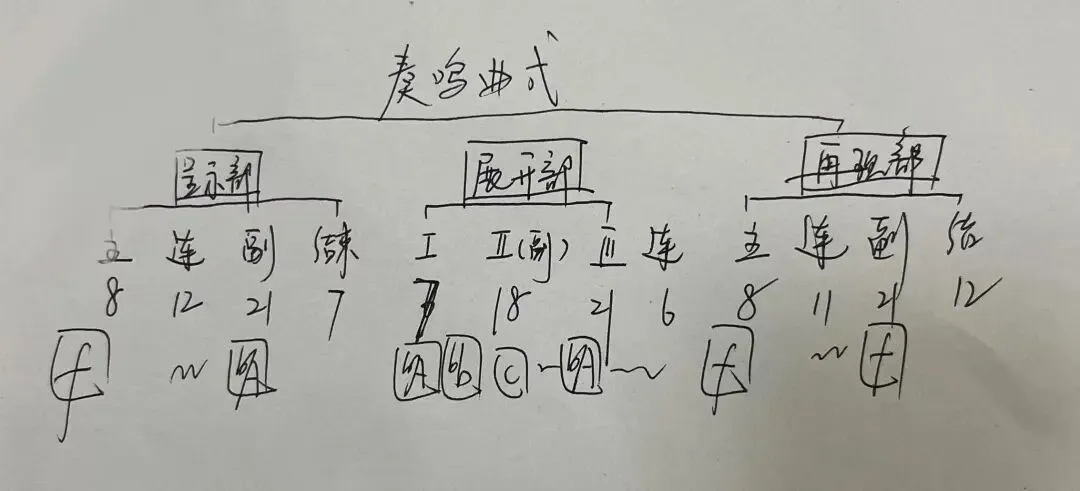 奏鸣曲式
呈示部 展开部 再现部
主 连 副 结束 I II(副) III 连 主 连 副 结
8 12 21 7 18 21 6 8 11 21 12
f ~ bA bA bb c ~ bA ~ f ~ f